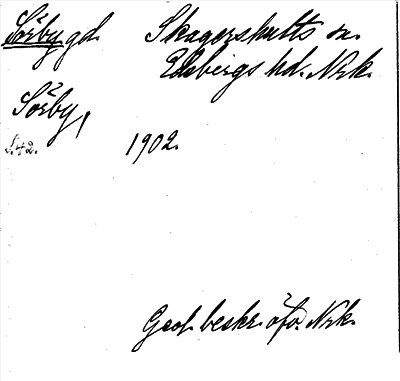 Sörby gd. Skagershults sn.
Edsbergs hd. Nrk.
Sörby,
S. 42. 1902.
Geogr. beskr. öfv. Nrk.